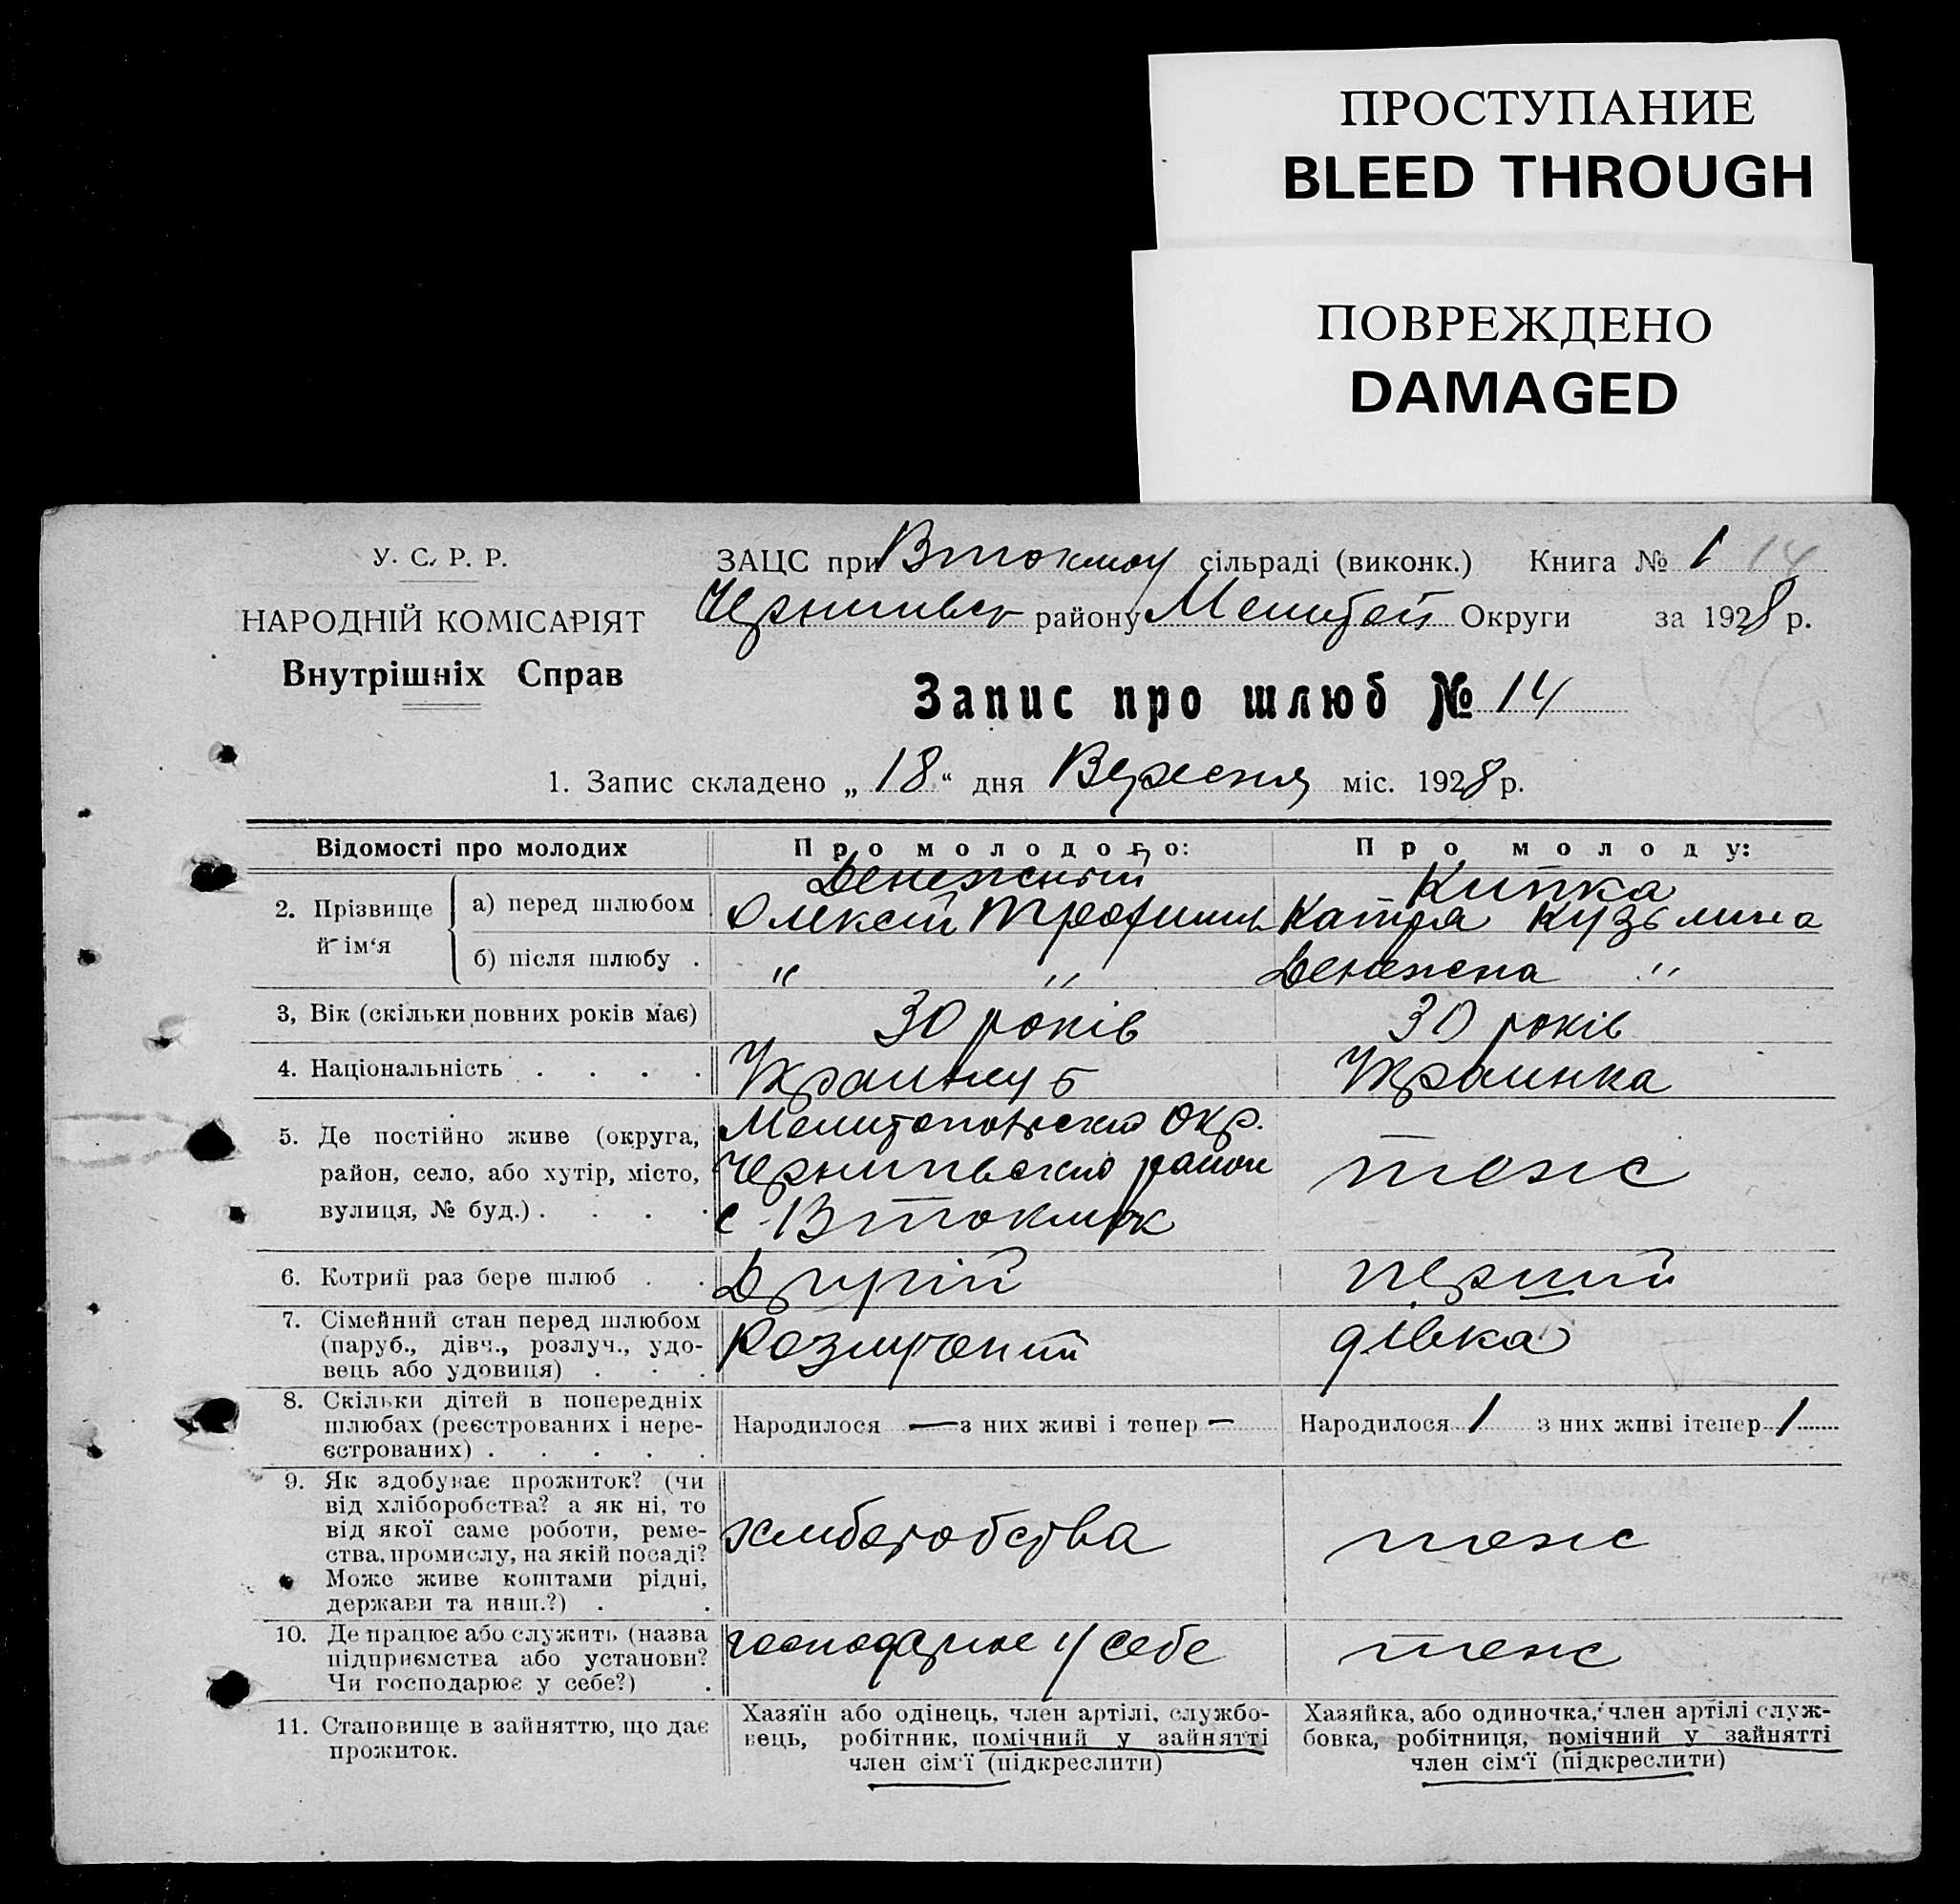 ПРОСТУПАНИЕ
BLEED THROUGH
ПОВРЕЖДЕНО
DAMAGED
У. С. Р. Р.
НАРОДНІЙ КОМІСАРІЯТ
Внутрішніх Справ
ЗАЦС при Втокмоу сільраді (виконк.) Книга № 1 14
району Округи за 1928 р.
Запис про шлюб № 14
1. Запис складено „ 18 “ дня Вересня міс. 1928 р.
Відомості про молодих Про молодого: Про молоду:
2. Прізвище й ім‘я
а) перед шлюбом Денежний Олексій Трофимів Кипка Катря Кузьмина
б) після шлюбу . " " Денежна "
3, Вік (скільки повних років має) 30 років 30 років
4. Національність . . . . Українець Украинка
5. Де постійно живе (округа, район, село, або хутір, місто, вулиця, № буд.) . . . .
Окр.
район
с. Втокмак
тоже
6. Котрий раз бере шлюб . . Другій перший
7. Сімейний стан перед шлюбом (паруб., дівч., розлуч., удовець або удовиця) . . . Розлучоний дівка
8. Скільки дітей в попередніх шлюбах (реєстрованих і нереєстрованих) . . . . .
Народилося — з них живі і тепер — Народилося 1 з них живі ітепер 1
9. Як здобуває прожиток? (чи від хліборобства? а як ні, то від якої саме роботи, ремества, промислу, на якій посаді? Може живе коштами рідні, держави та инш.?) . .
хлиборобства тоже
10. Де працює або служить (назва підприємства або установи? Чи господарює у себе?) .
господарює у себе тоже
11. Становище в зайняттю, що дає прожиток.
Хазяїн або одінець, член артілі, службовець, робітник, помічний у зайнятті член сім‘ї (підкреслити)
Хазяйка, або одиночка, член артілі службовка, робітниця, помічний у зайнятті член сім‘ї (підкреслити)